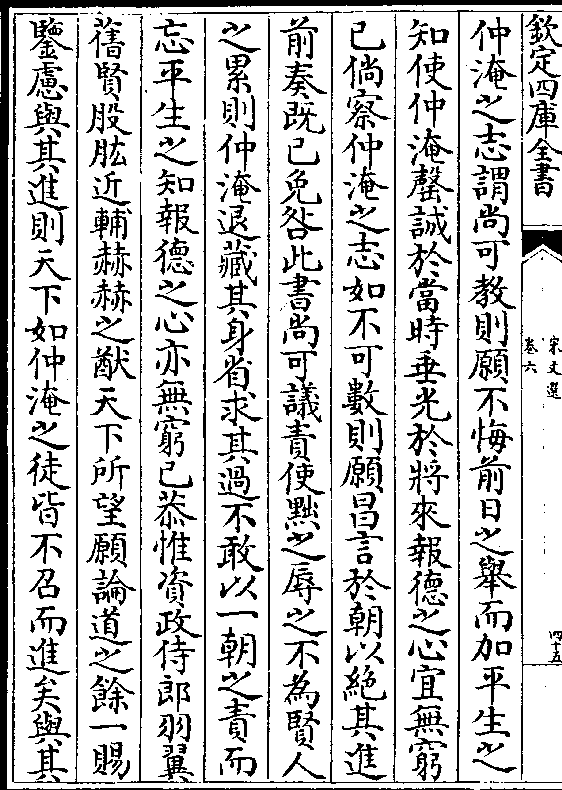 欽定四庫全書
宋文選
卷六
四十五
仲淹之志謂尚可教則願不悔前日之舉而加平生之
知使仲淹罄誠於當時垂光於將來報德之心宜無窮
已倘察仲淹之志如不可數則願昌言於朝以絶其進
前奏既已免咎此書尚可議責使黜之辱之不為賢人
之累則仲淹退藏其身省求其過不敢以一朝之責而
忘平生之知報德之心亦無窮已恭惟資政侍郎羽翼
舊賢股肱近輔赫赫之猷天下所望願論道之餘一賜
鑒慮與其進則天下如仲淹之徒皆不召而進矣與其